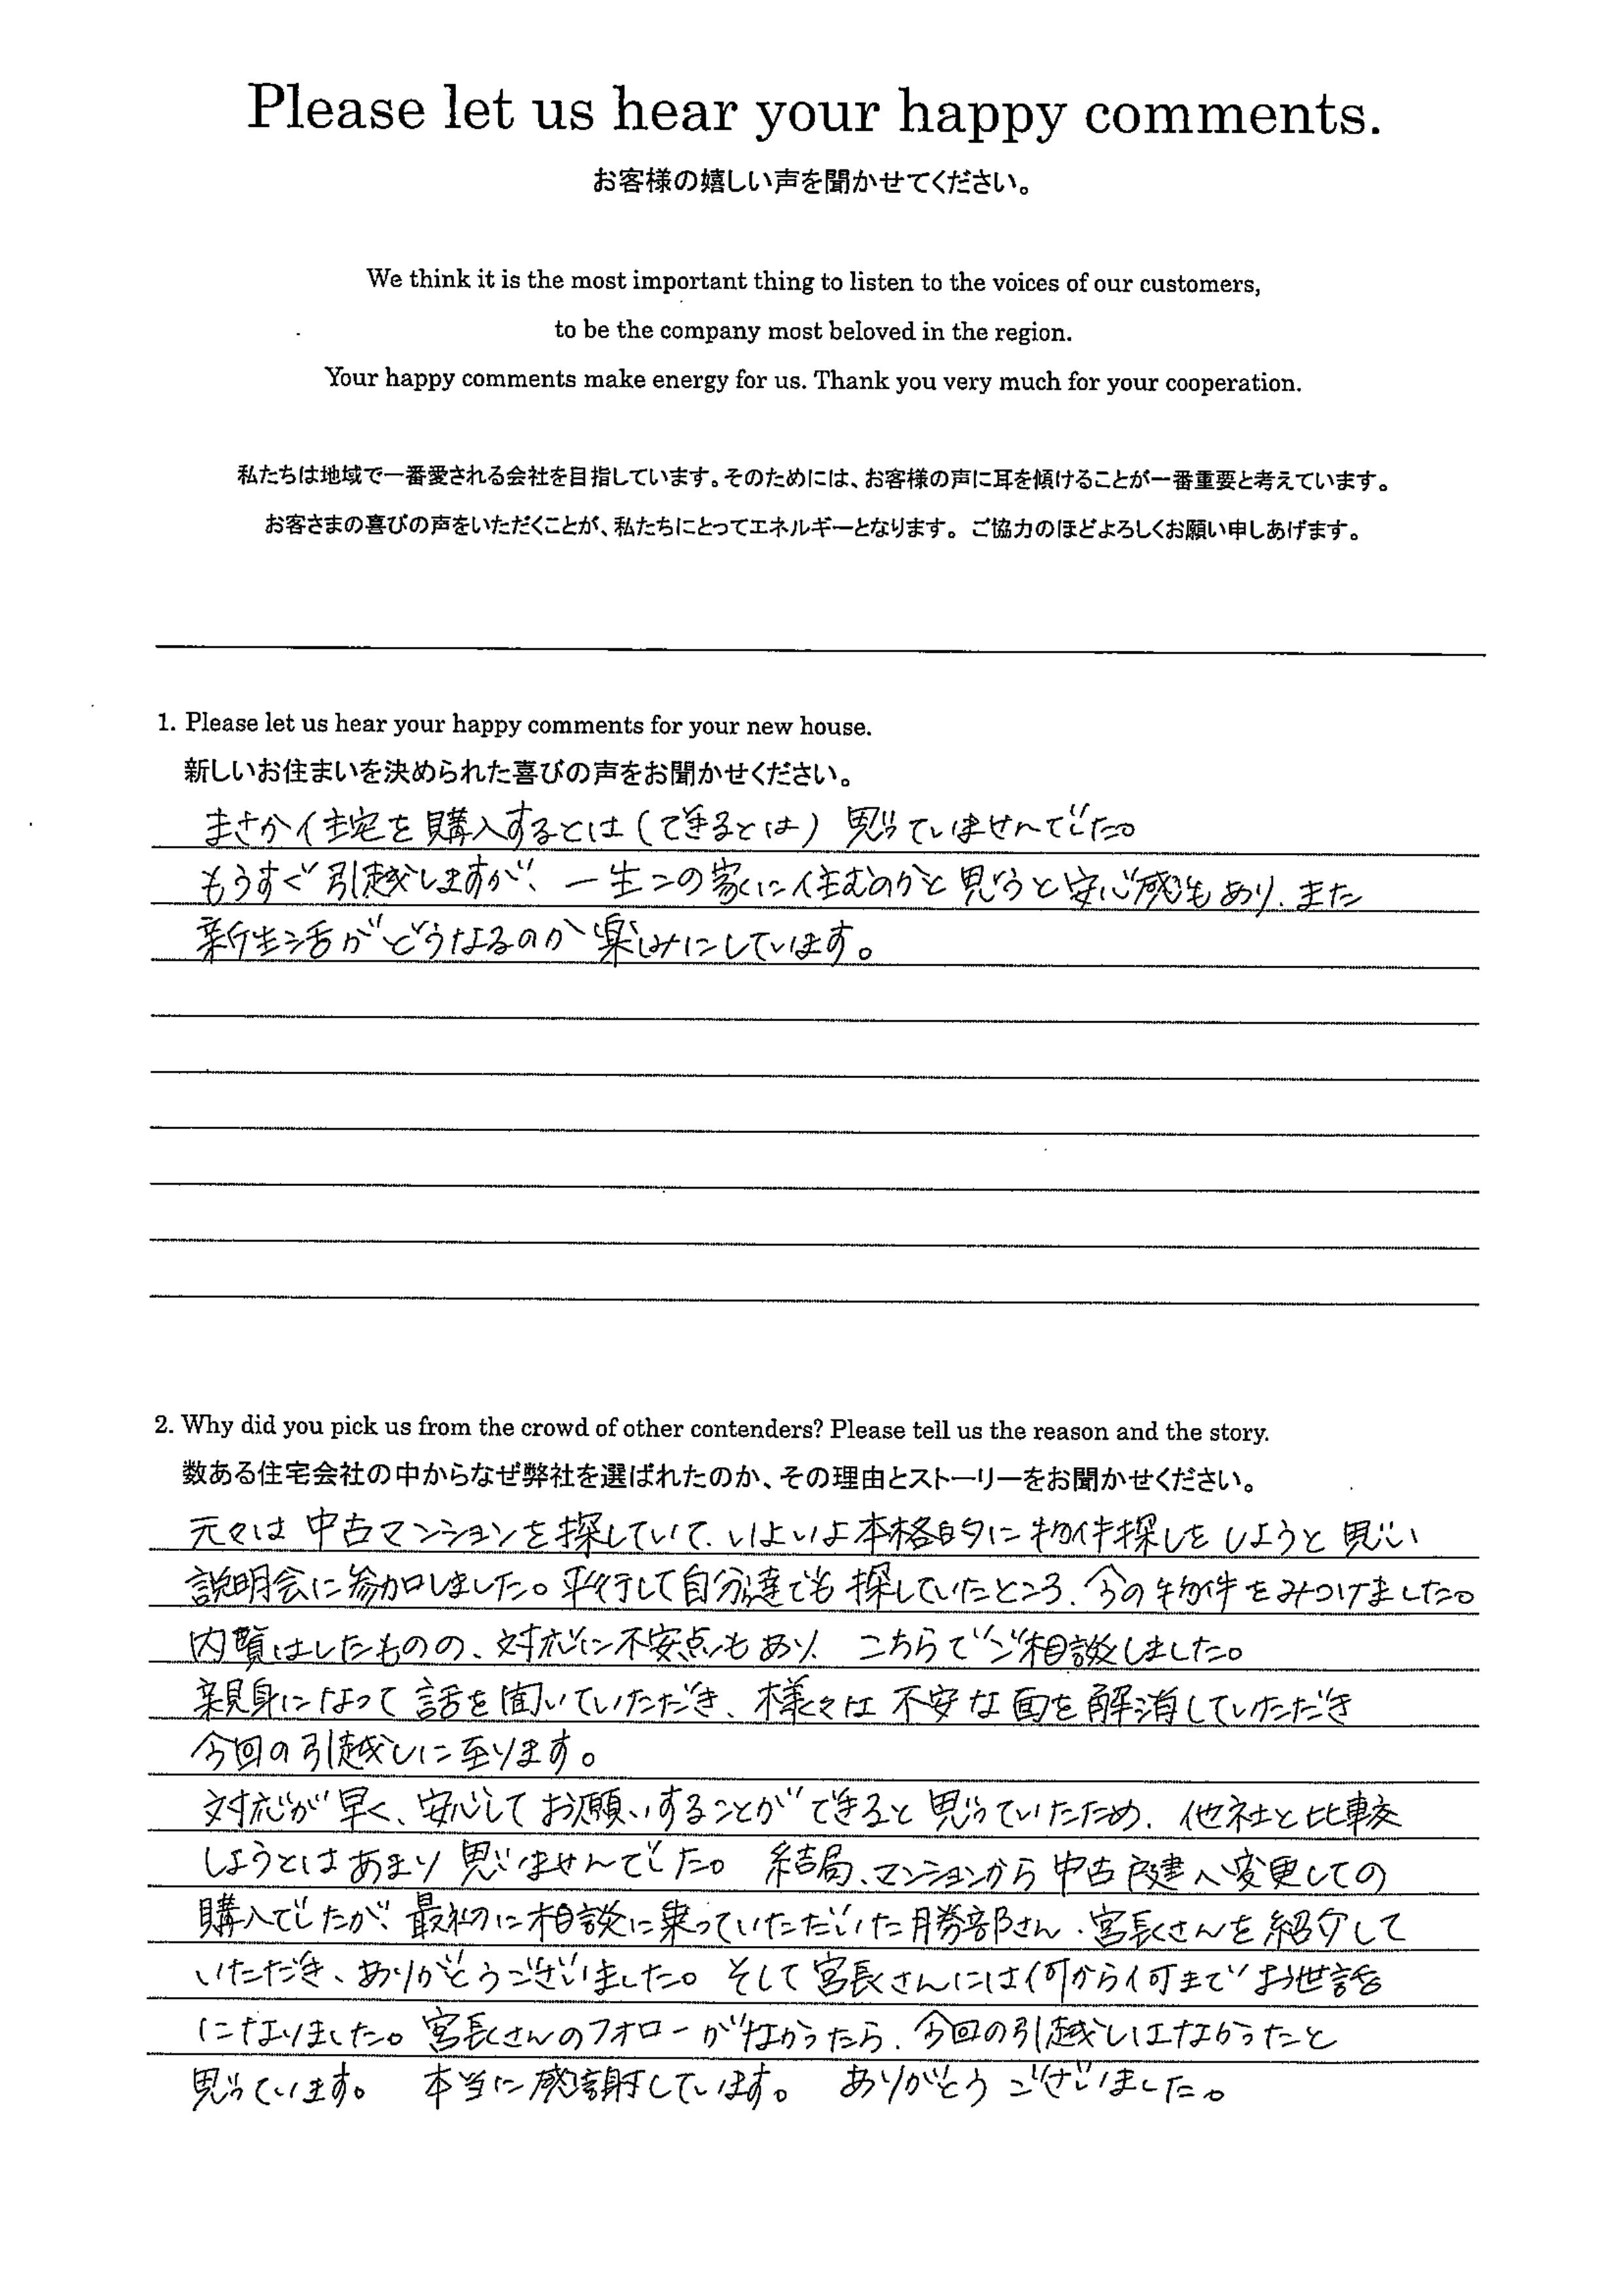 Please let us hear your happy comments.
お客様の嬉しい声を聞かせてください。
We think it is the most important thing to listen to the voices of our customers,
to be the company most beloved in the region.
Your happy comments make energy for us. Thank you very much for your cooperation.
私たちは地域で一番愛される会社を目指しています。そのためには、お客様の声に耳を傾けることが一番重要と考えています。
お客さまの喜びの声をいただくことが、私たちにとってエネルギーとなります。ご協力のほどよろしくお願い申しあげます。
1. Please let us hear your happy comments for your new house.
新しいお住まいを決められた喜びの声をお聞かせください。
まさか住宅を購入するとは(できるとは)思っていませんでした。
もうすぐ引越しますが、一生この家に住むのかと思うと安心感もあり、また
新生活がどうなるのか楽しみにしています。
2. Why did you pick us from the crowd of other contenders? Please tell us the reason and the story.
数ある住宅会社の中からなぜ弊社を選ばれたのか、その理由とストーリーをお聞かせください。
元々は中古マンションを探していて、いよいよ本格的に物件探しをしようと思い
説明会に参加しました。平行して自分達でも探していたところ、今の物件をみつけました。
内覧はしたものの、対応に不安点もあり、こちらでご相談しました。
親身になって話を聞いていただき、様々な不安な面を解消していただき
今回の引越しに至ります。
対応が早く、安心してお願いすることができると思っていたため、他社と比較
しようとはあまり思いませんでした。結局、マンションから中古戸建へ変更しての
購入でしたが、最初に相談に乗っていただいた勝部さん、宮長さんを紹介して
いただき、ありがとうございました。そして宮長さんには何から何までお世話
になりました。宮長さんのフォローがなかったら、今回の引越しはなかったと
思っています。本当に感謝しています。ありがとうございました。